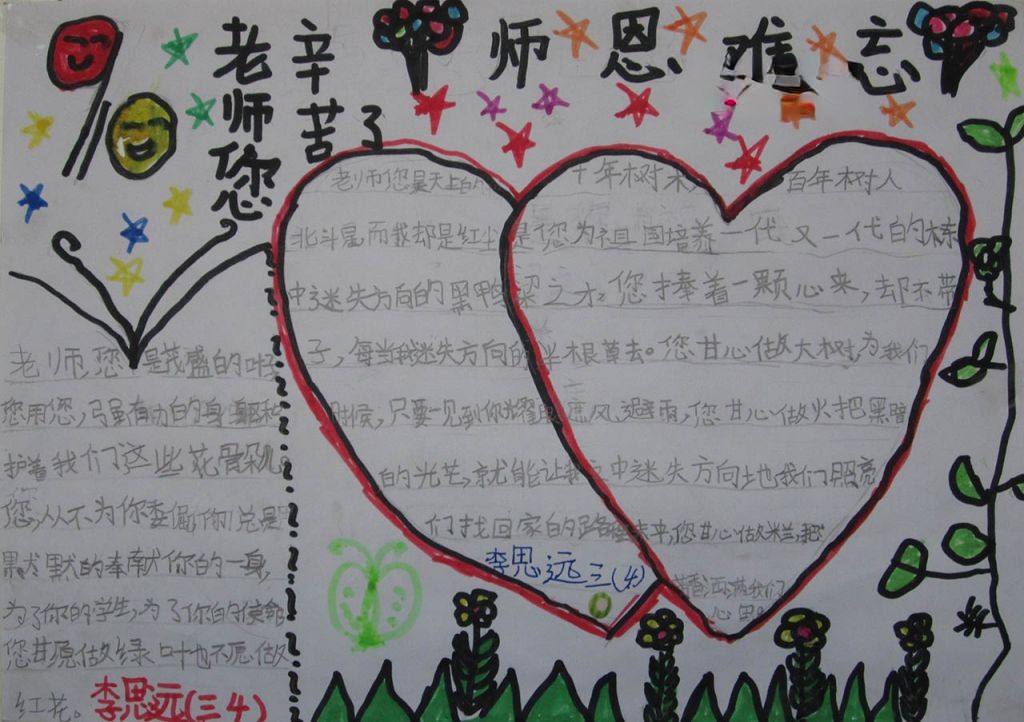 老师您
辛苦了
师恩难忘
老师您是天上的
北斗星而我却是红尘
中迷失方向的黑鸭
子，每当我迷失方向的
时候，只要一见到你
的光芒，就能让我
们找回家的路
李思远三(4)
十年树木 百年树人
是您为祖国培养一代又一代的栋
梁之才。您捧着一颗心来，却不带
半根草去。您甘心做大树，为我们
遮风避雨，您甘心做火把黑暗
中迷失方向地我们照亮
未来，您甘心做米兰，把
清香洒满我们
心里
老师，您是茂盛的
您用您，
护着我们这些花骨朵儿。
您，从不为你
默默的奉献你的一身，
为了你的学生，为了你的使命
您甘愿做绿叶也不愿做
红花。
李思远(三4)